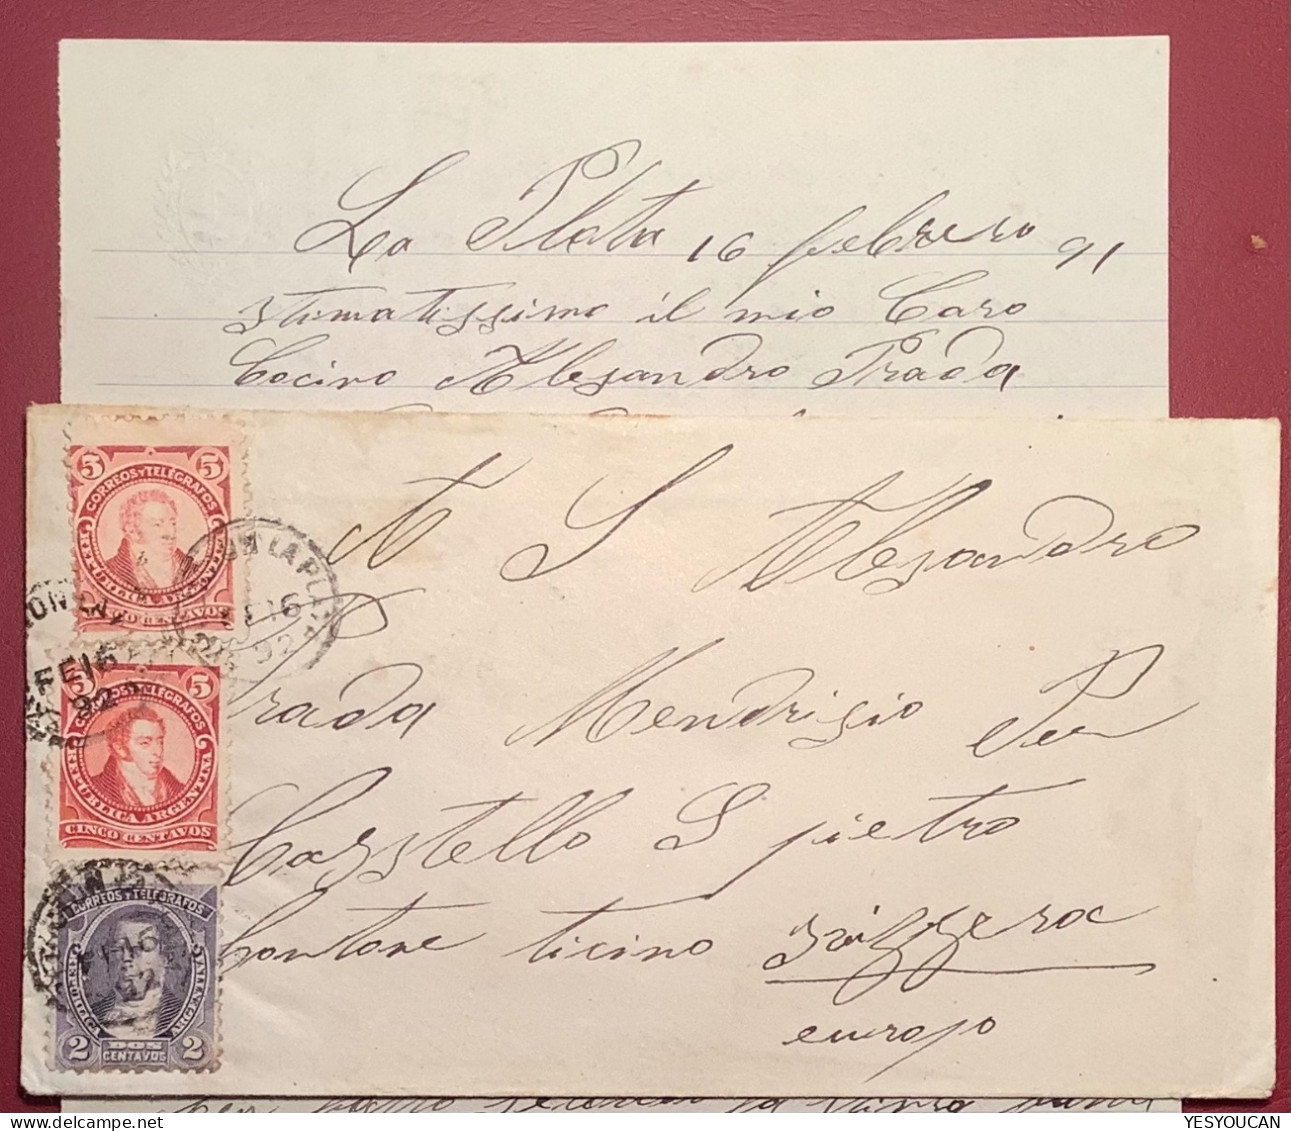 La Plata 16 febrero 91
stimatissimo il mio Caro
Cocino Alesandro Prada
A S Alesandro
Prada Mendrisio Per
Castello S pietro
Contone ticino svizzera
europo
5 5
CORREOS Y TELEGRAFOS
REPUBLICA ARGENTINA
CINCO CENTAVOS
LA PLATA
FE16
92
5 5
CORREOS Y TELEGRAFOS
REPUBLICA ARGENTINA
CINCO CENTAVOS
FE16
92
CORREOS Y TELEGRAFOS
REPUBLICA ARGENTINA
2 DOS CENTAVOS 2
FE16
92
YESYOUCAN